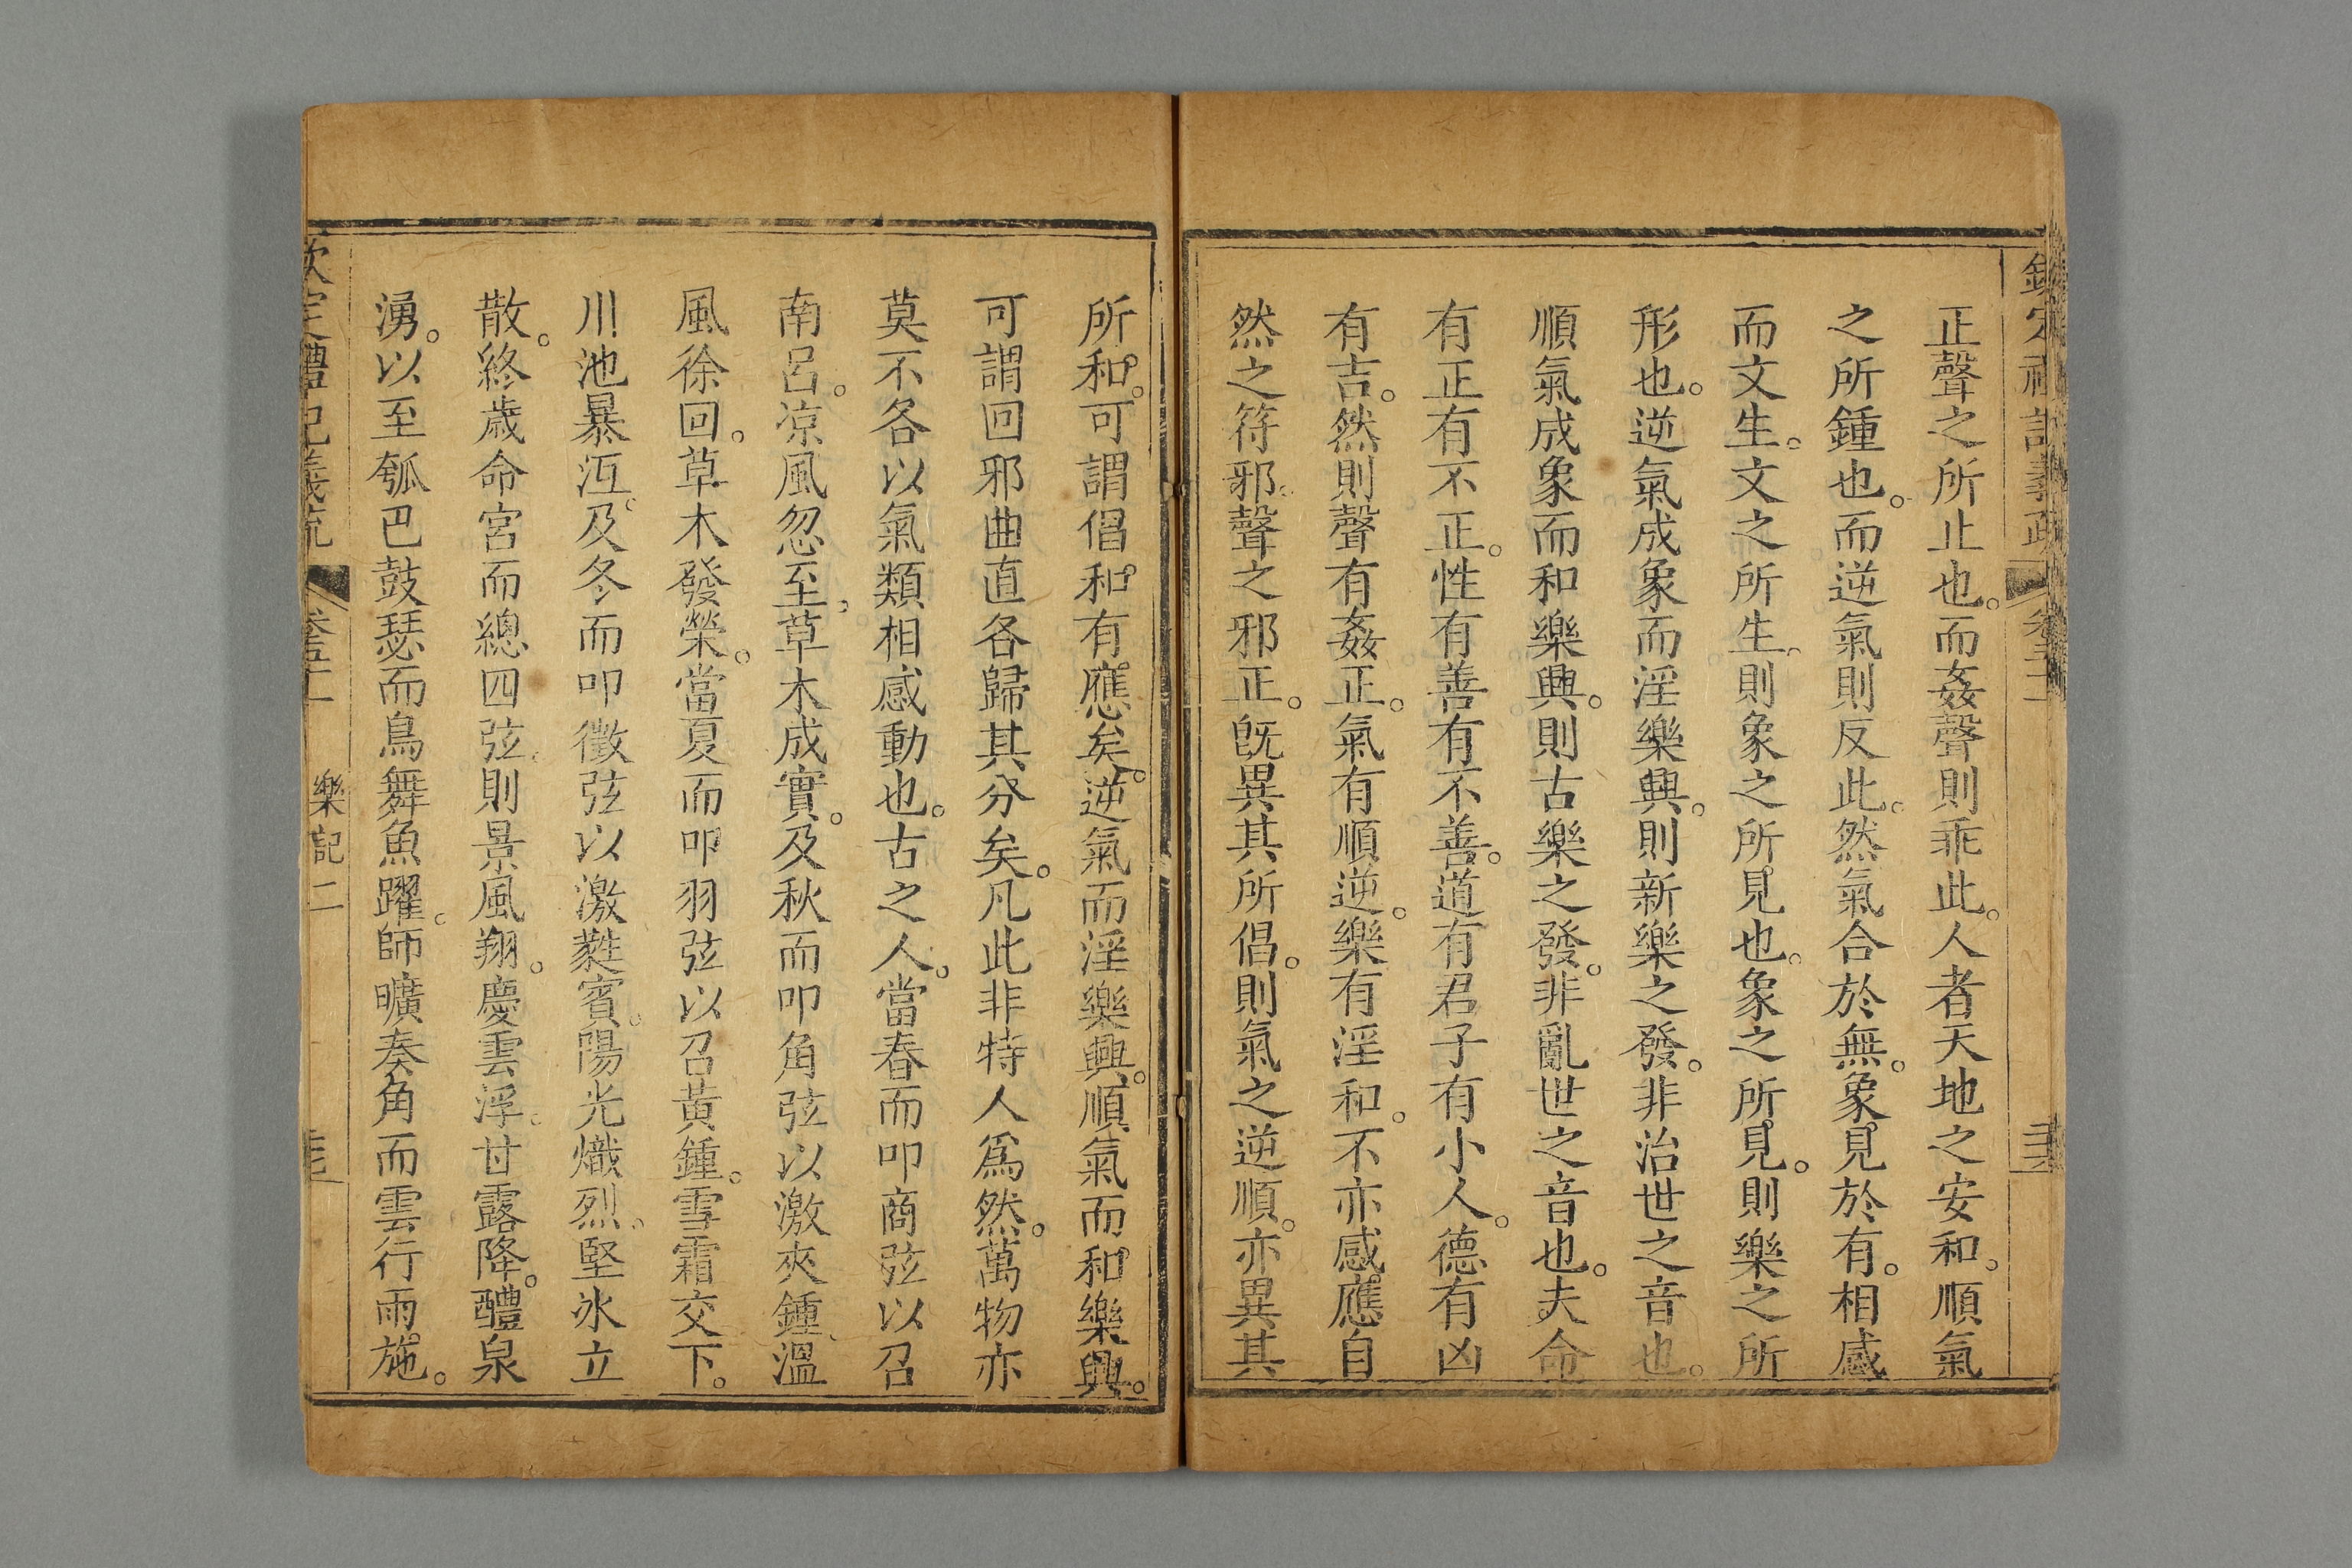 正聲之所止也。而姦聲則乖此。人者天地之安和。順氣
之所鍾也。而逆氣則反此。然氣合於無。象見於有。相感
而文生。文之所生。則象之所見也。象之所見。則樂之所
形也。逆氣成象而淫樂興。則新樂之發。非治世之音也。
順氣成象而和樂興。則古樂之發。非亂世之音也。夫命
有正有不正。性有善有不善。道有君子有小人。德有凶
有吉。然則聲有姦正。氣有順逆。樂有淫和。不亦感應自
然之符邪。聲之邪正。旣異其所倡。則氣之逆順。亦異其
所和。可謂倡和有應矣。逆氣而淫樂興。順氣而和樂興。
可謂回邪曲直各歸其分矣。凡此非特人爲然。萬物亦
莫不各以氣類相感動也。古之人。當春而叩商弦以召
南呂。凉風忽至。草木成實。及秋而叩角弦以激夾鍾。溫
風徐回。草木發榮。當夏而叩羽弦以召黃鍾。雪霜交下。
川池暴沍。及冬而叩徵弦以激蕤賓。陽光熾烈。堅冰立
散。終歲命宮而總四弦。則景風翔。慶雲浮。甘露降。醴泉
湧。以至瓠巴鼓瑟而鳥舞魚躍。師曠奏角而雲行雨施。
欽定禮記義疏
樂記二